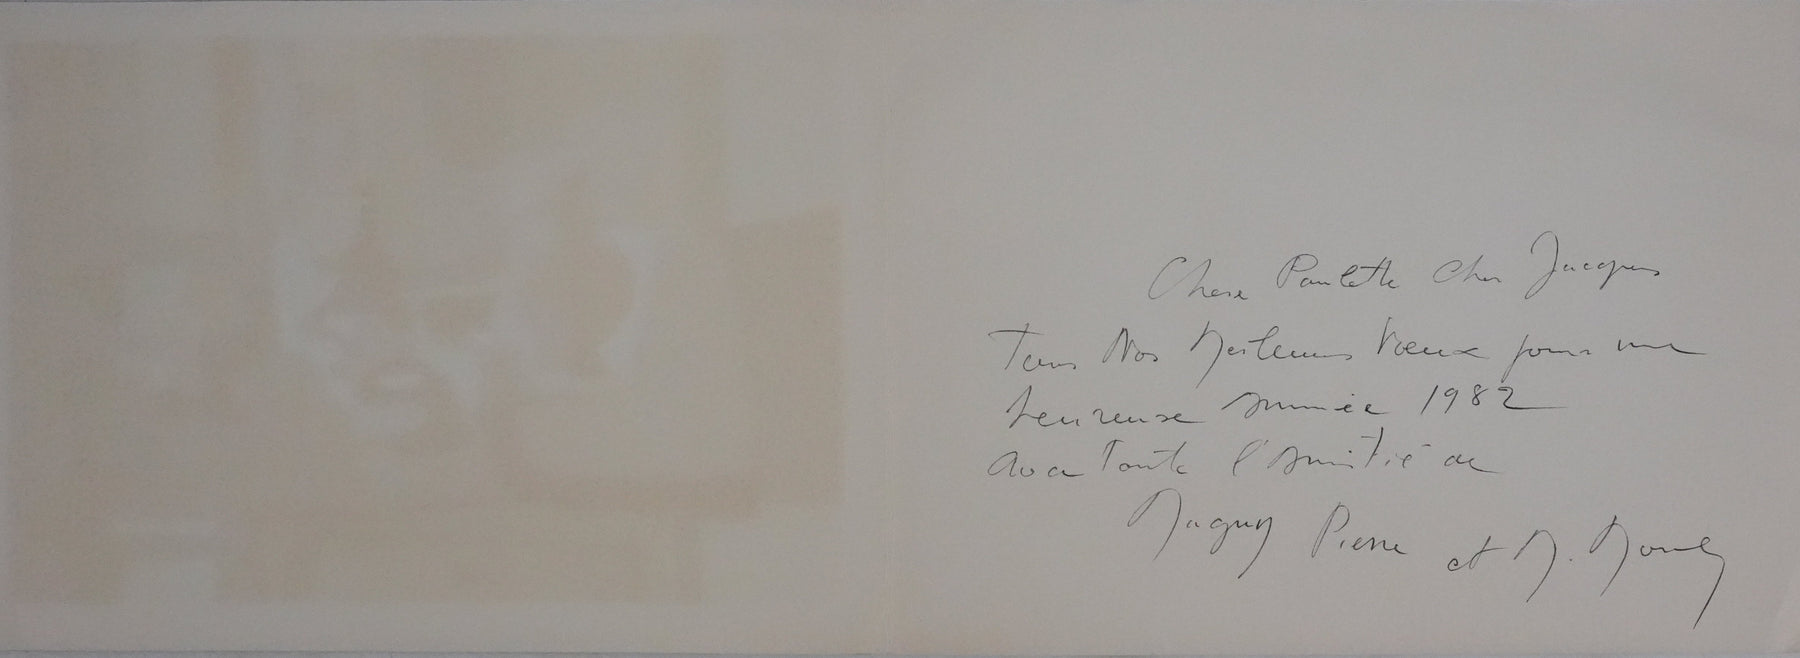 Chère Paulette Cher Jacques
Tous Nos Meilleurs Vœux pour une
heureuse Année 1982
avec Toute l'Amitié de
Maguy Pierre et M.